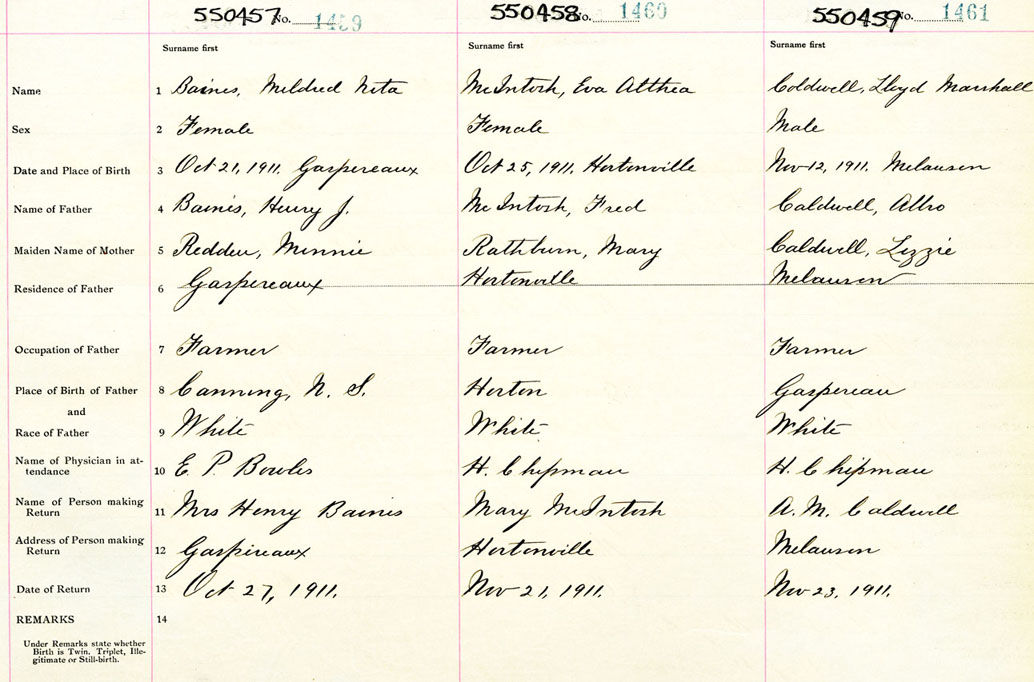 550457 No. 1459 550458 No. 1460 550459 No. 1461
Surname first Surname first Surname first
Name 1 Baines, Mildred Neta McIntosh, Eva Althea Coldwell, Lloyd Marshall
Sex 2 Female Female Male
Date and Place of Birth 3 Oct 21, 1911. Gaspereaux Oct 25, 1911. Hortonville Nov 12, 1911. Melanson
Name of Father 4 Baines, Henry J. McIntosh, Fred Caldwell, Albro
Maiden Name of Mother 5 Redden, Minnie Rathburn, Mary Caldwell, Lizzie
Residence of Father 6 Gaspereaux Hortonville Melanson
Occupation of Father 7 Farmer Farmer Farmer
Place of Birth of Father 8 Canning, N. S. Horton Gaspereau
and
Race of Father 9 White White White
Name of Physician in at-
tendance 10 E. P. Bowles H. Chipman H. Chipman
Name of Person making
Return 11 Mrs Henry Baines Mary McIntosh A. M. Caldwell
Address of Person making
Return 12 Gaspireaux Hortonville Melanson
Date of Return 13 Oct 27, 1911. Nov 21, 1911. Nov 23, 1911.
REMARKS 14
Under Remarks state whether
Birth is Twin. Triplet, Ille-
gitimate or Still-birth.